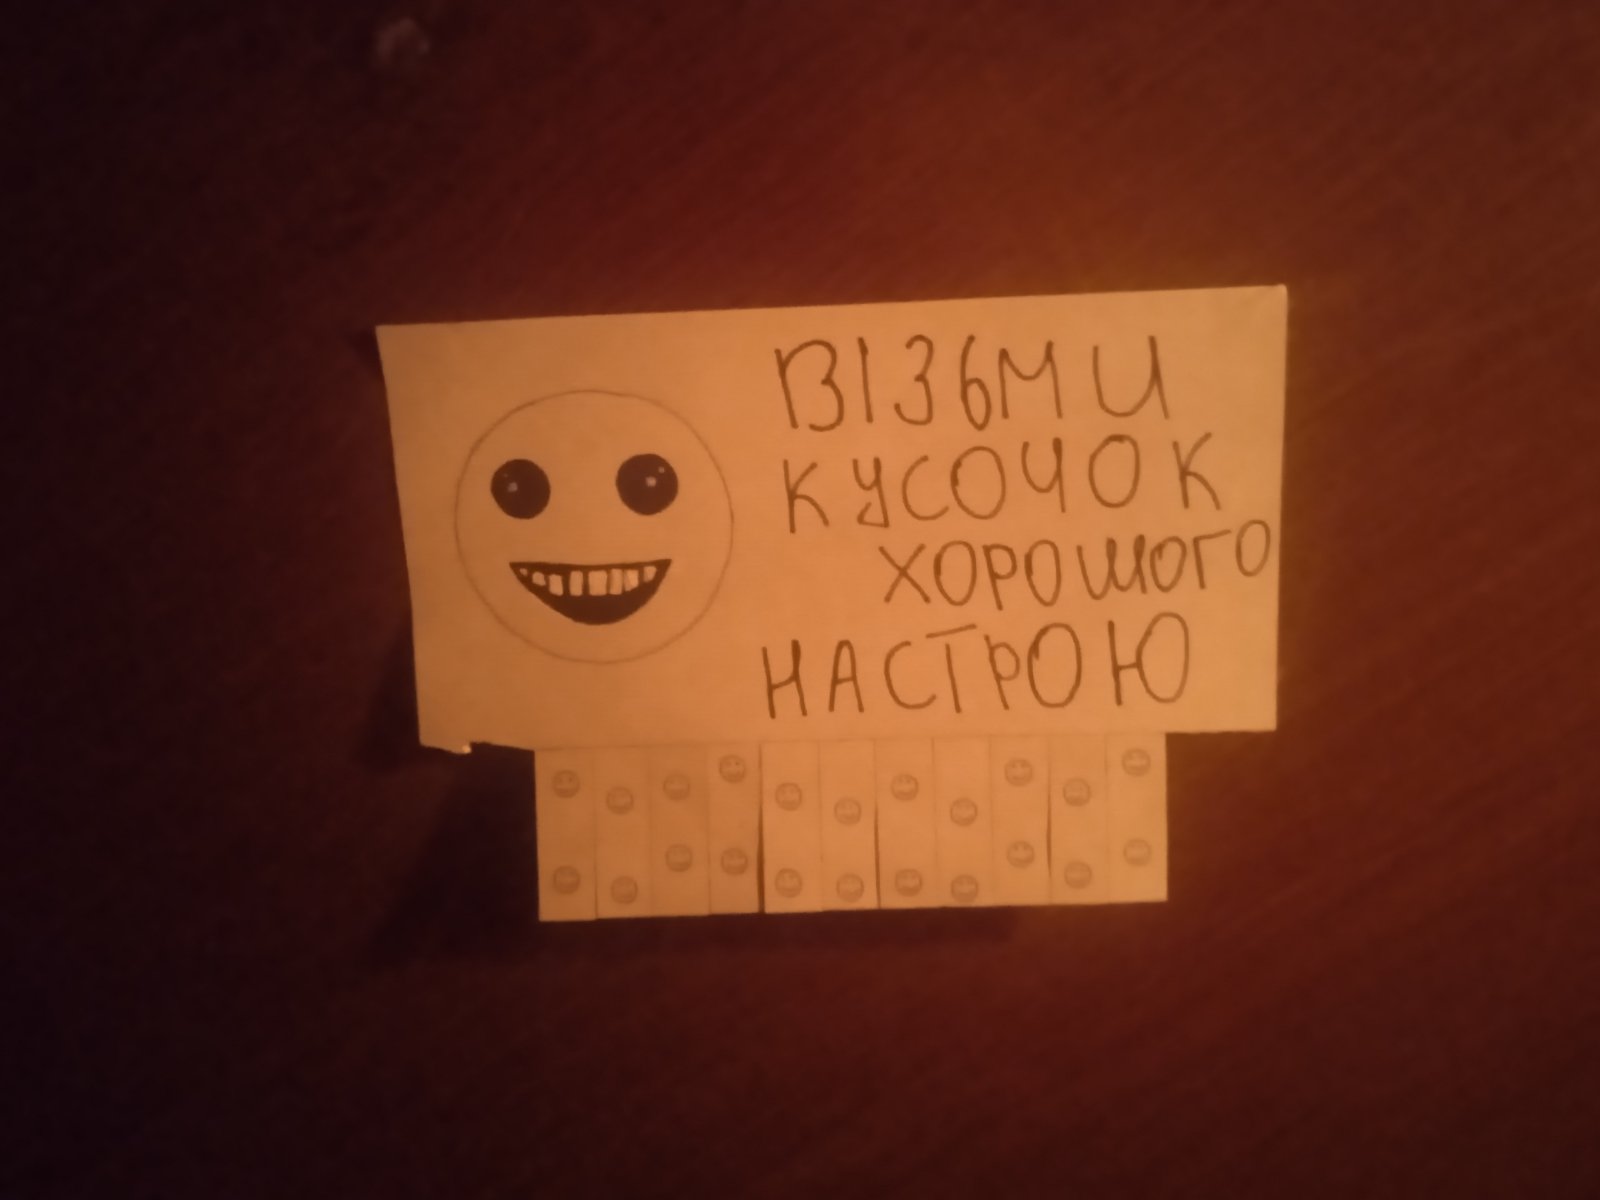 ВІЗЬМИ
КУСОЧОК
ХОРОШОГО
НАСТРОЮ